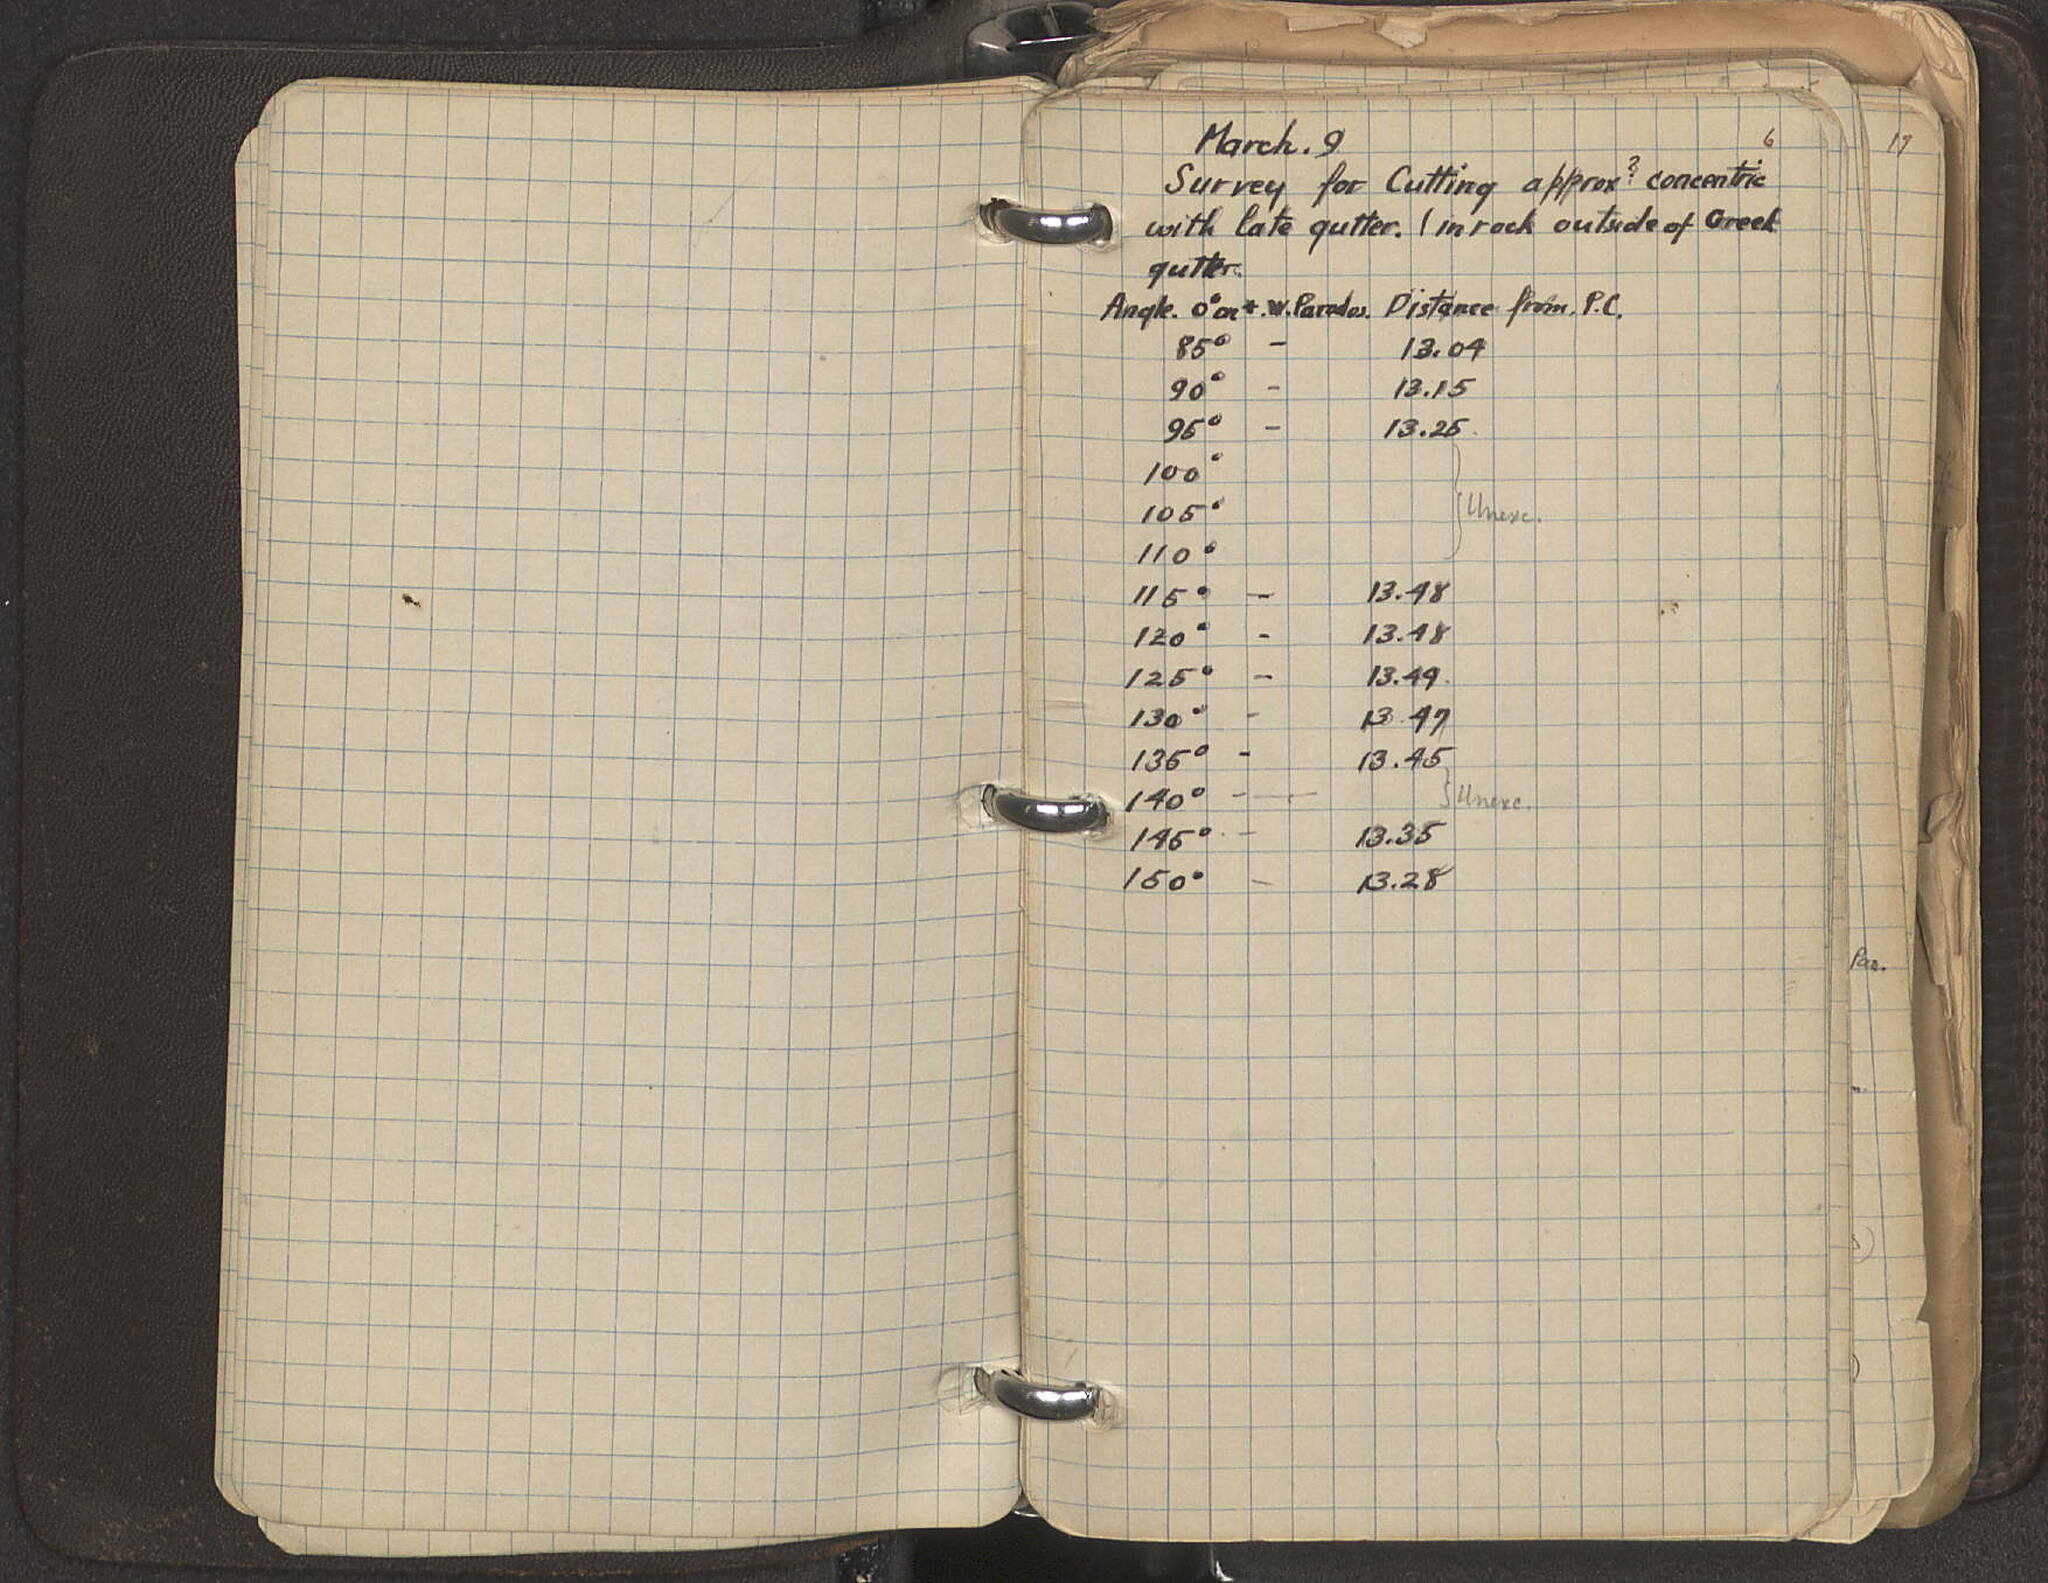 March. 9
6
17
Survey for Cutting approx? concentric
with late gutter. (in rock outside of Greek
gutter.
Angle. 0° on +. W. Parodos. Distance from. P.C.
85° - 13.04
90° - 13.15
95° - 13.25
100°
105° } Unexc.
110°
115° - 13.48
120° - 13.48
125° - 13.49
130° - 13.47
135° - 13.45
140° - — } Unexc.
145° - 13.35
150° - 13.28
Par.
s)
)